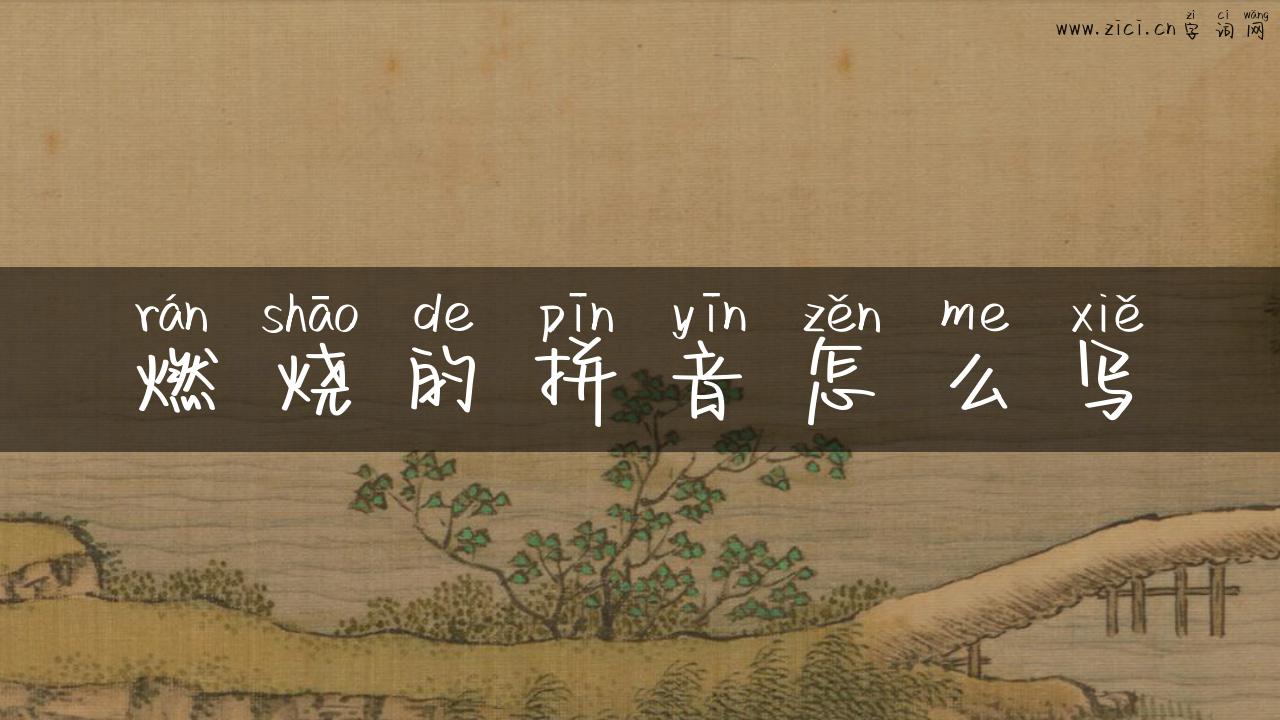 zì cí wǎng
www.zici.cn 字词网
rán shāo de pīn yīn zěn me xiě
燃烧的拼音怎么写